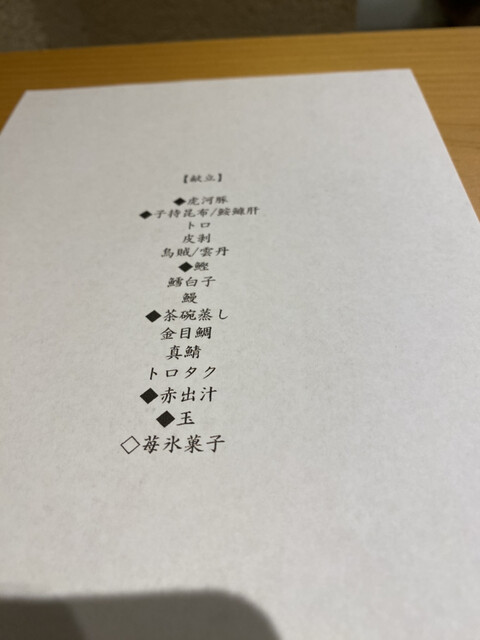 【献立】
◆虎河豚
◆子持昆布/鮟鱇肝
トロ
皮剥
烏賊/雲丹
◆鰹
鱈白子
鰻
◆茶碗蒸し
金目鯛
真鯖
トロタク
◆赤出汁
◆玉
◇苺氷菓子